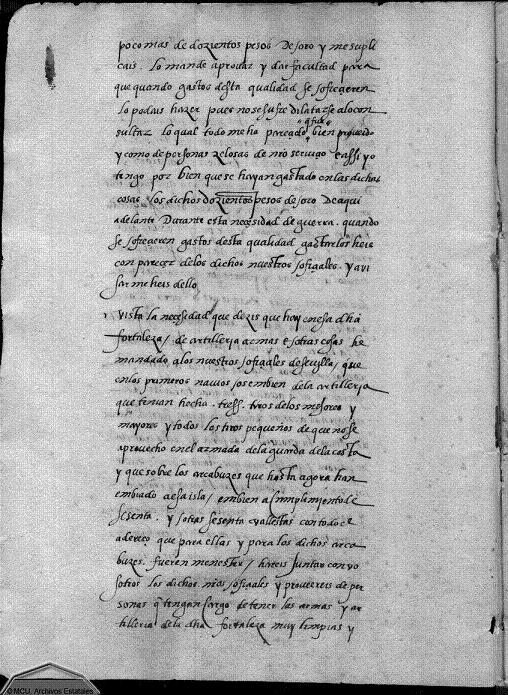 poco mas de dozientos pesos de oro y me supli
cais lo mande aprouar y dar facultad para
que quando gastos desta qualidad se ofreçeren
lo podais hazer pues no se sufre dilatarse a lo con
sultar lo qual todo me ha pareçido q fue bien proueido
y como de personas zelosas de nro seruiçio e assi yo
tengo por bien que se hayan gastado en las dichas
cosas los dichos dozientos pesos de oro De aqui
adelante Durante esta neçesidad de guerra quando
se ofreçeren gastos desta qualidad gastarlos heis
con pareçer de los dichos nuestros ofiçiales y avi
sar me heis dello
vista la neçesidad que dezis que hay en esa dha
fortaleza / de artilleria armas e otras cosas he
mandado a los nuestros ofiçiales de seuilla / que
en los primeros nauios os embien de la artilleria
que tenian hecha tres tiros de los mejores y
mayores y todos los tiros pequeños de que no se
aprovecho en el armada de la guarda de la costa
y que sobre los arcabuzes que hasta agora han
embiado a esa isla / embien a cumplimiento de
sesenta y otras sesenta vallestas con todo el
adereço que para ellas y para los dichos arca
buzes fueren menester / hareis juntar con vo
sotros los dichos nros ofiçiales y proueereis de per
sonas q tengan cargo de tener las armas y ar
tilleria de la dha fortaleza muy limpias y
© MCU. Archivos Estatales